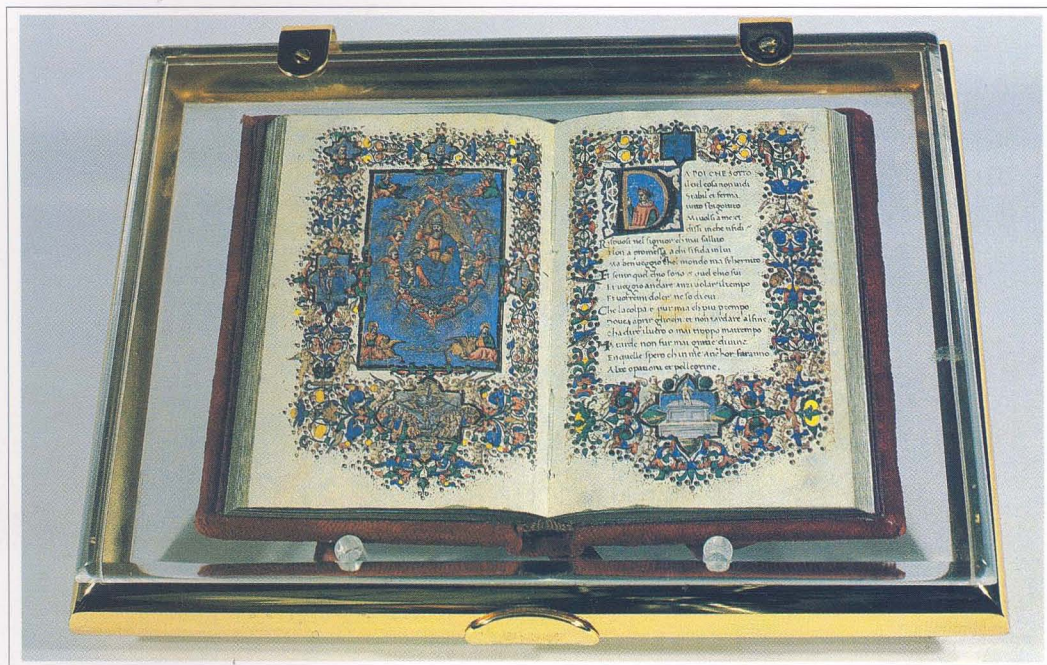 DA POI CHE SOTTO
il ciel cosa non uidi
Stabil et ferma
tutto sbigottito
Mi uolsi a me et
dissi in che ti fidi
Rispuose nel signor che mai fallito
Non a promessa a chi si fida in lui
Ma ben ueggio chel mondo ma schernito
Et sento quel chio sono et quel chio fui
Et ueggio andare anzi uolar il tempo
Et uorremi doler ne so di cui
Che la colpa e pur mia che piu per tempo
et non tardare al fine
Cha dire il uero o mai troppo mattempo
Ma tarde non fur mai gratie diuine
En quelle spero ch in me anchor faranno
Alte operationi et pellegrine.